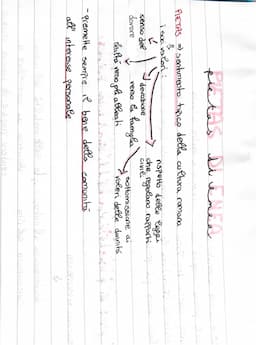 PIETAS DI ENEA
PIETAS => sentimento tipico della cultura romana
I suoi valori:
senso del dovere
devozione verso la famiglia
rispetto delle leggi che regolano rapporti civili
lealtà verso gli alleati
sottomissione ai voleri delle divinità
- Premette sempre il bene della comunità
all'interesse personale